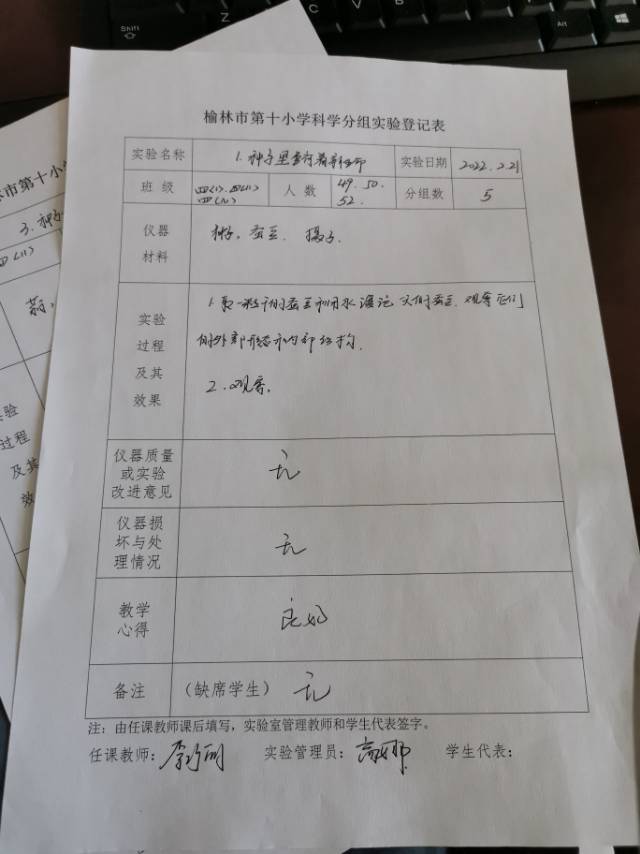 榆林市第十小学科学分组实验登记表
实验名称 1. 种子里孕育着新生命 实验日期 2022.2.21
班 级 四(1). 四(11) 人 数 49. 50. 分组数 5
52.
仪器 种子. 蚕豆. 镊子.
材料
实验 1. 取一粒干的蚕豆和用水浸泡 的蚕豆. 观察它们
过程 的外部形态和内部结构.
及其 2. 观察.
效果
仪器质量
或实验 无
改进意见
仪器损
坏与处 无
理情况
教学 良好
心得
备注 (缺席学生) 无
注：由任课教师课后填写，实验室管理教师和学生代表签字。
任课教师： 实验管理员： 学生代表：
市第十小学
3. 种子
四(1)
验
过程
及其
效
Shift
C
V
B
N
M
Alt